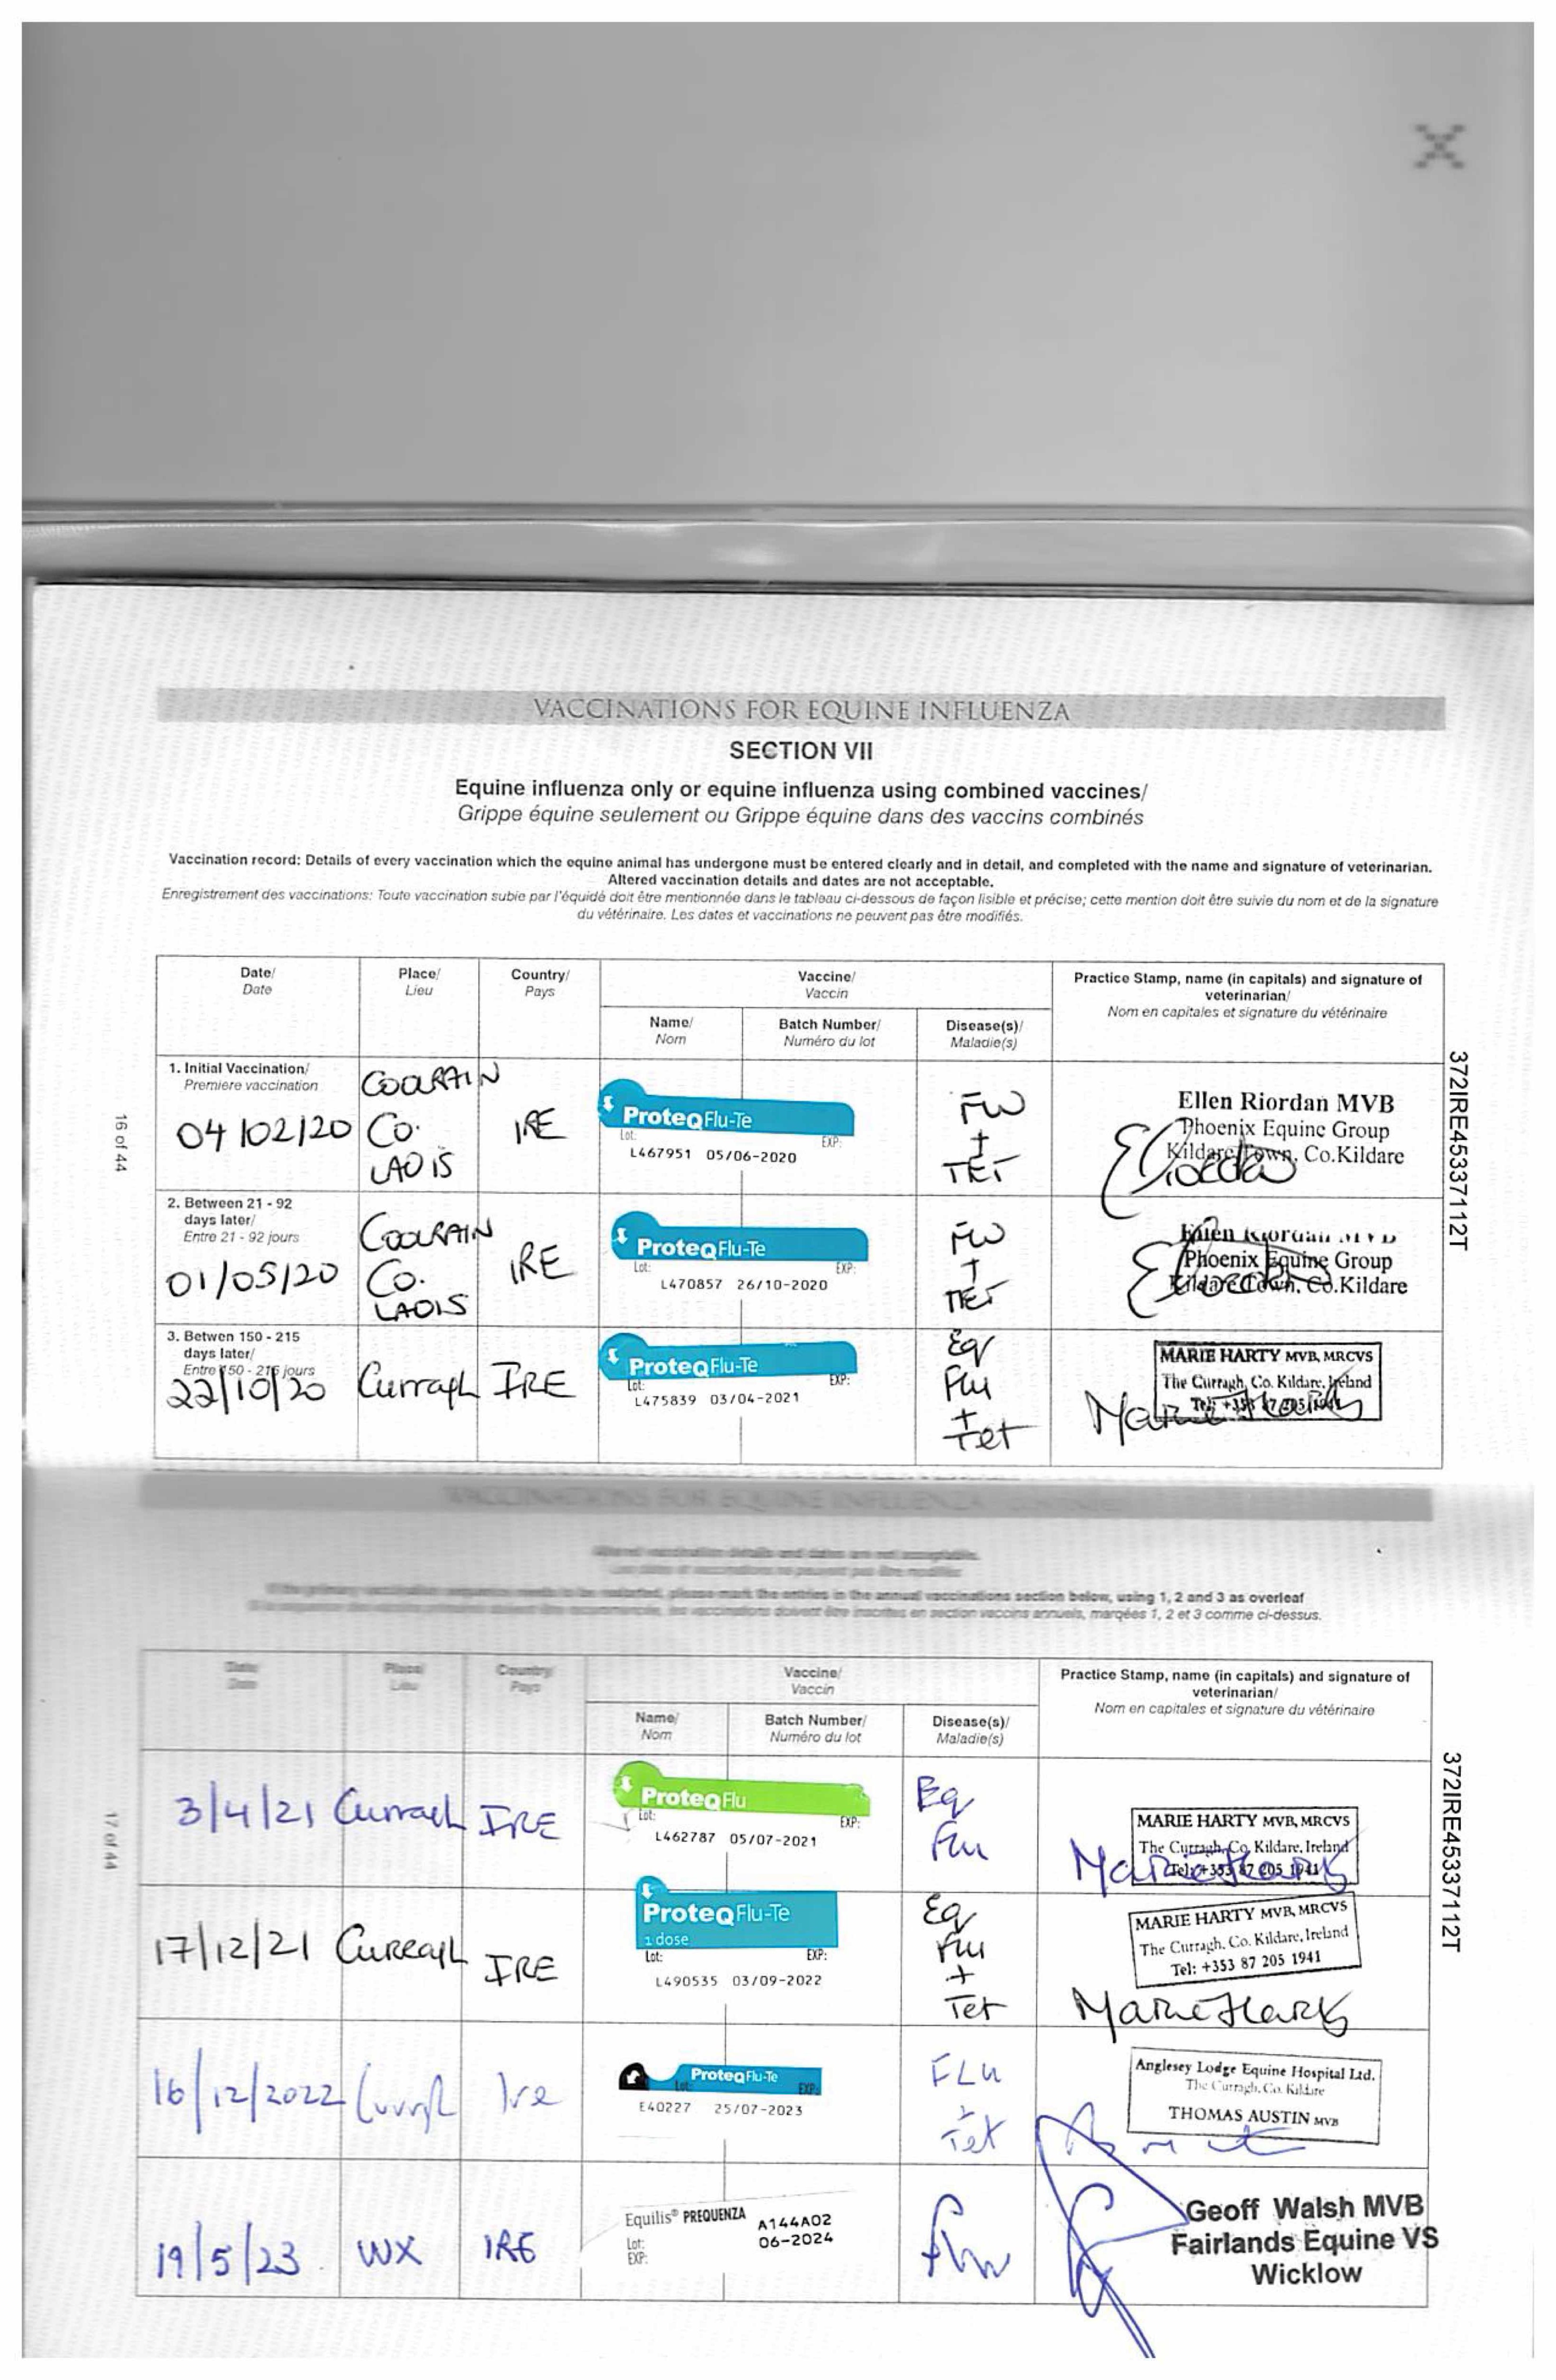 VACCINATIONS FOR EQUINE INFLUENZA
SECTION VII
Equine influenza only or equine influenza using combined vaccines/
Grippe équine seulement ou Grippe équine dans des vaccins combinés
Vaccination record: Details of every vaccination which the equine animal has undergone must be entered clearly and in detail, and completed with the name and signature of veterinarian.
Altered vaccination details and dates are not acceptable.
Enregistrement des vaccinations: Toute vaccination subie par l'équidé doit être mentionnée dans le tableau ci-dessous de façon lisible et précise; cette mention doit être suivie du nom et de la signature
du vétérinaire. Les dates et vaccinations ne peuvent pas être modifiés.
Date/
Date
Place/
Lieu
Country/
Pays
Vaccine/
Vaccin
Practice Stamp, name (in capitals) and signature of
veterinarian/
Nom en capitales et signature du vétérinaire
Name/
Nom
Batch Number/
Numéro du lot
Disease(s)/
Maladie(s)
1. Initial Vaccination/
Premiere vaccination
04/02/20
COOLRAIN
Co.
LAOIS
IRE
ProteqFlu-Te
Lot: EXP:
L467951 05/06-2020
FLU
+
TET
Ellen Riordan MVB
Phoenix Equine Group
Kildare Town, Co.Kildare
2. Between 21 - 92
days later/
Entre 21 - 92 jours
01/05/20
COOLRAIN
Co.
LAOIS
IRE
ProteqFlu-Te
Lot: EXP:
L470857 26/10-2020
FLU
+
TET
Ellen Riordan MVB
Phoenix Equine Group
Kildare Town, Co.Kildare
3. Betwen 150 - 215
days later/
Entre 150 - 215 jours
22/10/20
Curragh
IRE
ProteqFlu-Te
Lot: EXP:
L475839 03/04-2021
Eq
Flu
+
Tet
MARIE HARTY MVB, MRCVS
The Curragh, Co. Kildare, Ireland
Tel: +353 87 205 1941
Marie Harty
16 of 44
372IRE45337112T
VACCINATIONS FOR EQUINE INFLUENZA
Altered vaccination details and dates are not acceptable.
Les dates et vaccinations ne peuvent pas être modifiés
If the primary vaccination sequence needs to be restarted, please mark the entries in the annual vaccinations section below, using 1, 2 and 3 as overleaf
les vaccinations doivent être inscrites en section vaccins annuels, marqées 1, 2 et 3 comme ci-dessus.
Date/
Date
Place/
Lieu
Country/
Pays
Vaccine/
Vaccin
Practice Stamp, name (in capitals) and signature of
veterinarian/
Nom en capitales et signature du vétérinaire
Name/
Nom
Batch Number/
Numéro du lot
Disease(s)/
Maladie(s)
3/4/21
Curragh
IRE
ProteqFlu
Lot: EXP:
L462787 05/07-2021
Eq
Flu
MARIE HARTY MVB, MRCVS
The Curragh, Co. Kildare, Ireland
Tel: +353 87 205 1941
Marie Harty
17/12/21
Curragh
IRE
ProteqFlu-Te
1 dose
Lot: EXP:
L490535 03/09-2022
Eq
Flu
+
Tet
MARIE HARTY MVB, MRCVS
The Curragh, Co. Kildare, Ireland
Tel: +353 87 205 1941
Marie Harty
16/12/2022
Curragh
Ire
ProteqFlu-Te
Lot: EXP:
E40227 25/07-2023
FLU
+
Tet
Anglesey Lodge Equine Hospital Ltd.
The Curragh, Co. Kildare
THOMAS AUSTIN MVB
19/5/23
WX
IRE
Equilis® PREQUENZA
Lot:
EXP:
A144A02
06-2024
Flu
Geoff Walsh MVB
Fairlands Equine VS
Wicklow
17 of 44
372IRE45337112T